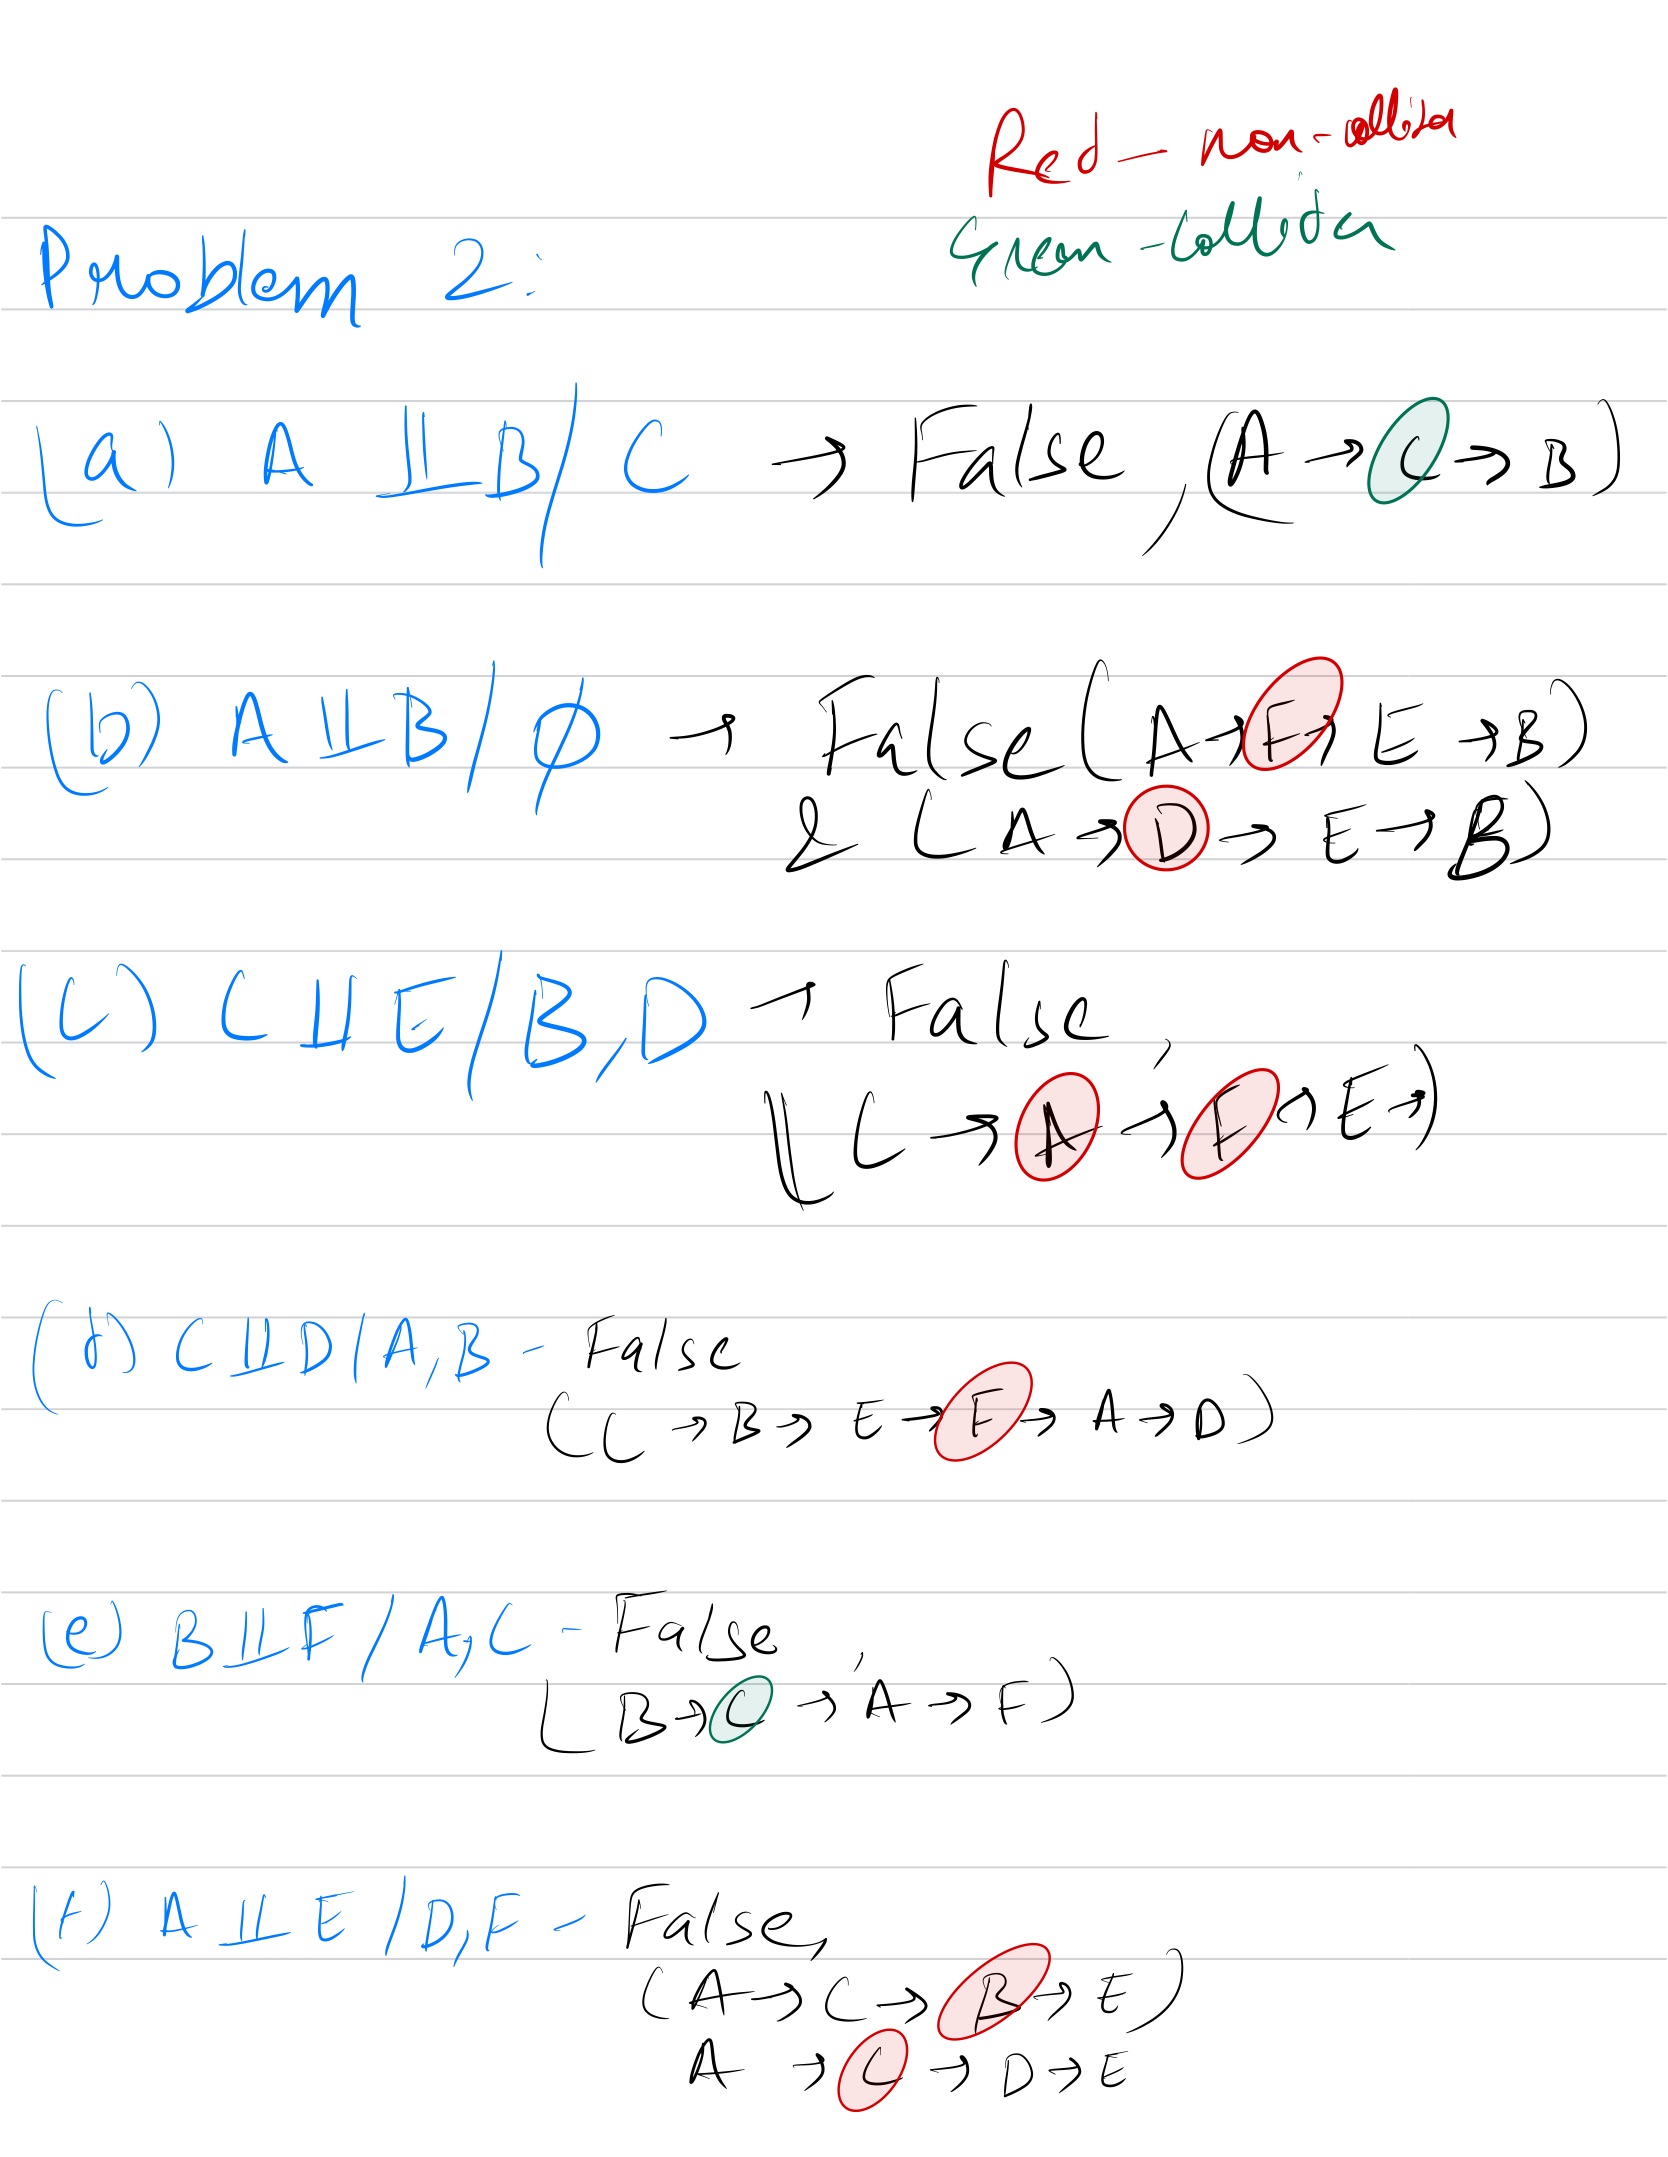 Red - non-collider
Green - Collider
Problem 2:
(a) A ⫫ B / C → False, (A → C → B)
(b) A ⫫ B / ϕ → False (A → F → E → B)
& (A → D → E → B)
(C) C ⫫ E / B, D → False,
(C → A → F → E →)
(d) C ⫫ D / A, B - False
(C → B → E → F → A → D)
(e) B ⫫ F / A, C - False,
(B → C → A → F)
(f) A ⫫ E / D, F - False,
(A → C → B → E)
A → C → D → E